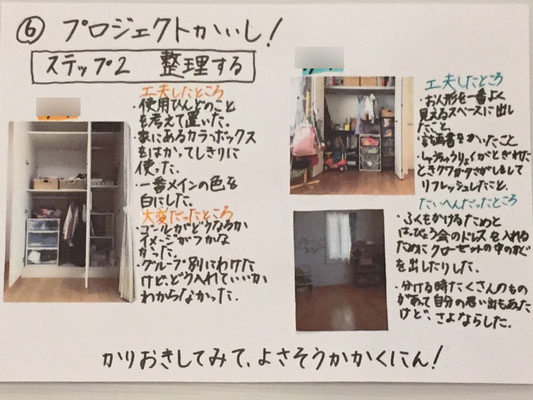 ⑥ プロジェクトかいし!
ステップ2 整理する
工夫したところ
・使用ひんどのこと
を考えて置いた。
家にあるカラーボックス
をはかってしきりに
使った。
・一番メインの色を
白にした。
大変だったところ
・ゴールがどうなるか
イメージがつかな
かった。
・グループ別にわけた
けど、どう入れていいか
わからなかった。
工夫したところ
・お人形を一番よく
見えるスペースに出し
たこと。
・計画書をかいたこと
とき
リフレッシュしたこと。
たいへんだったところ
・ふくもかけるためと
はっぴょう会のドレスを入れる
ためにクローゼットの中のぼうを
出したりした。
・分ける時たくさんのもの
があって自分の思い出もあた
けど、さよならした。
かりおきしてみて、よさそうかかくにん!